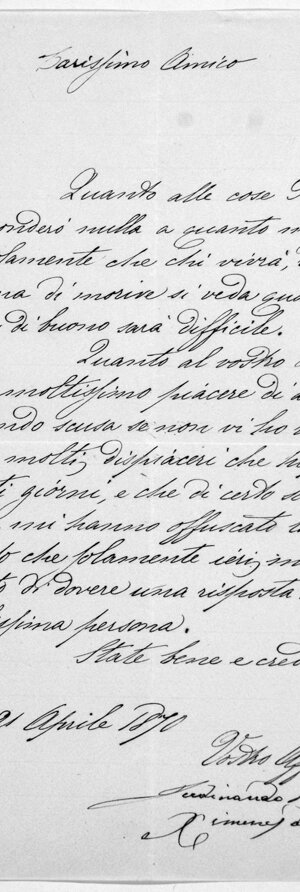 Carissimo Amico
Quanto alle cose
onderó nulla a quanto m
lamente che chi vivrà,
na di morire si veda que
di buono sarà difficile.
Quanto al vostro
moltissimo piacere di a
ndo scusa se non vi ho
molti dispiaceri che h
ti giorni, e che di certo s
mi hanno offuscato
o che solamente ieri, m
to di dovere una risposta
issima persona.
State bene e cred
21 Aprile 1870
Vostro Aff
Ferdinando
Ximenes d